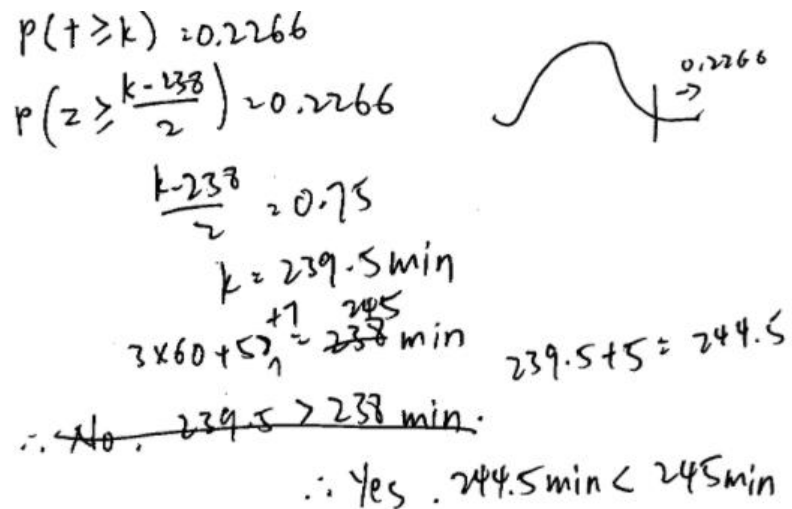 P(t ≥ k) = 0.2266
P(z ≥ (k-238)/2) = 0.2266
0.2266
(k-238)/2 = 0.75
k = 239.5 min
3×60+58+7 = 238 245 min
239.5+5 = 244.5
∴ No. 239.5 > 238 min.
∴ Yes. 244.5 min < 245 min